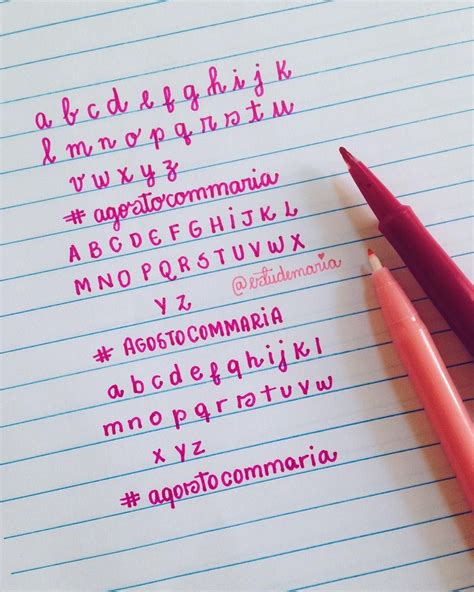 a b c d e f g h i j k
l m n o p q r s t u
v w x y z
# agostocommaria
A B C D E F G H i J K L
M N O P Q R S T U V W X
Y Z
@estudemaria
# AGOSTOCOMMARIA
a b c d e f g h i j k l
m n o p q r s t u v w
x y z
# agostocommaria